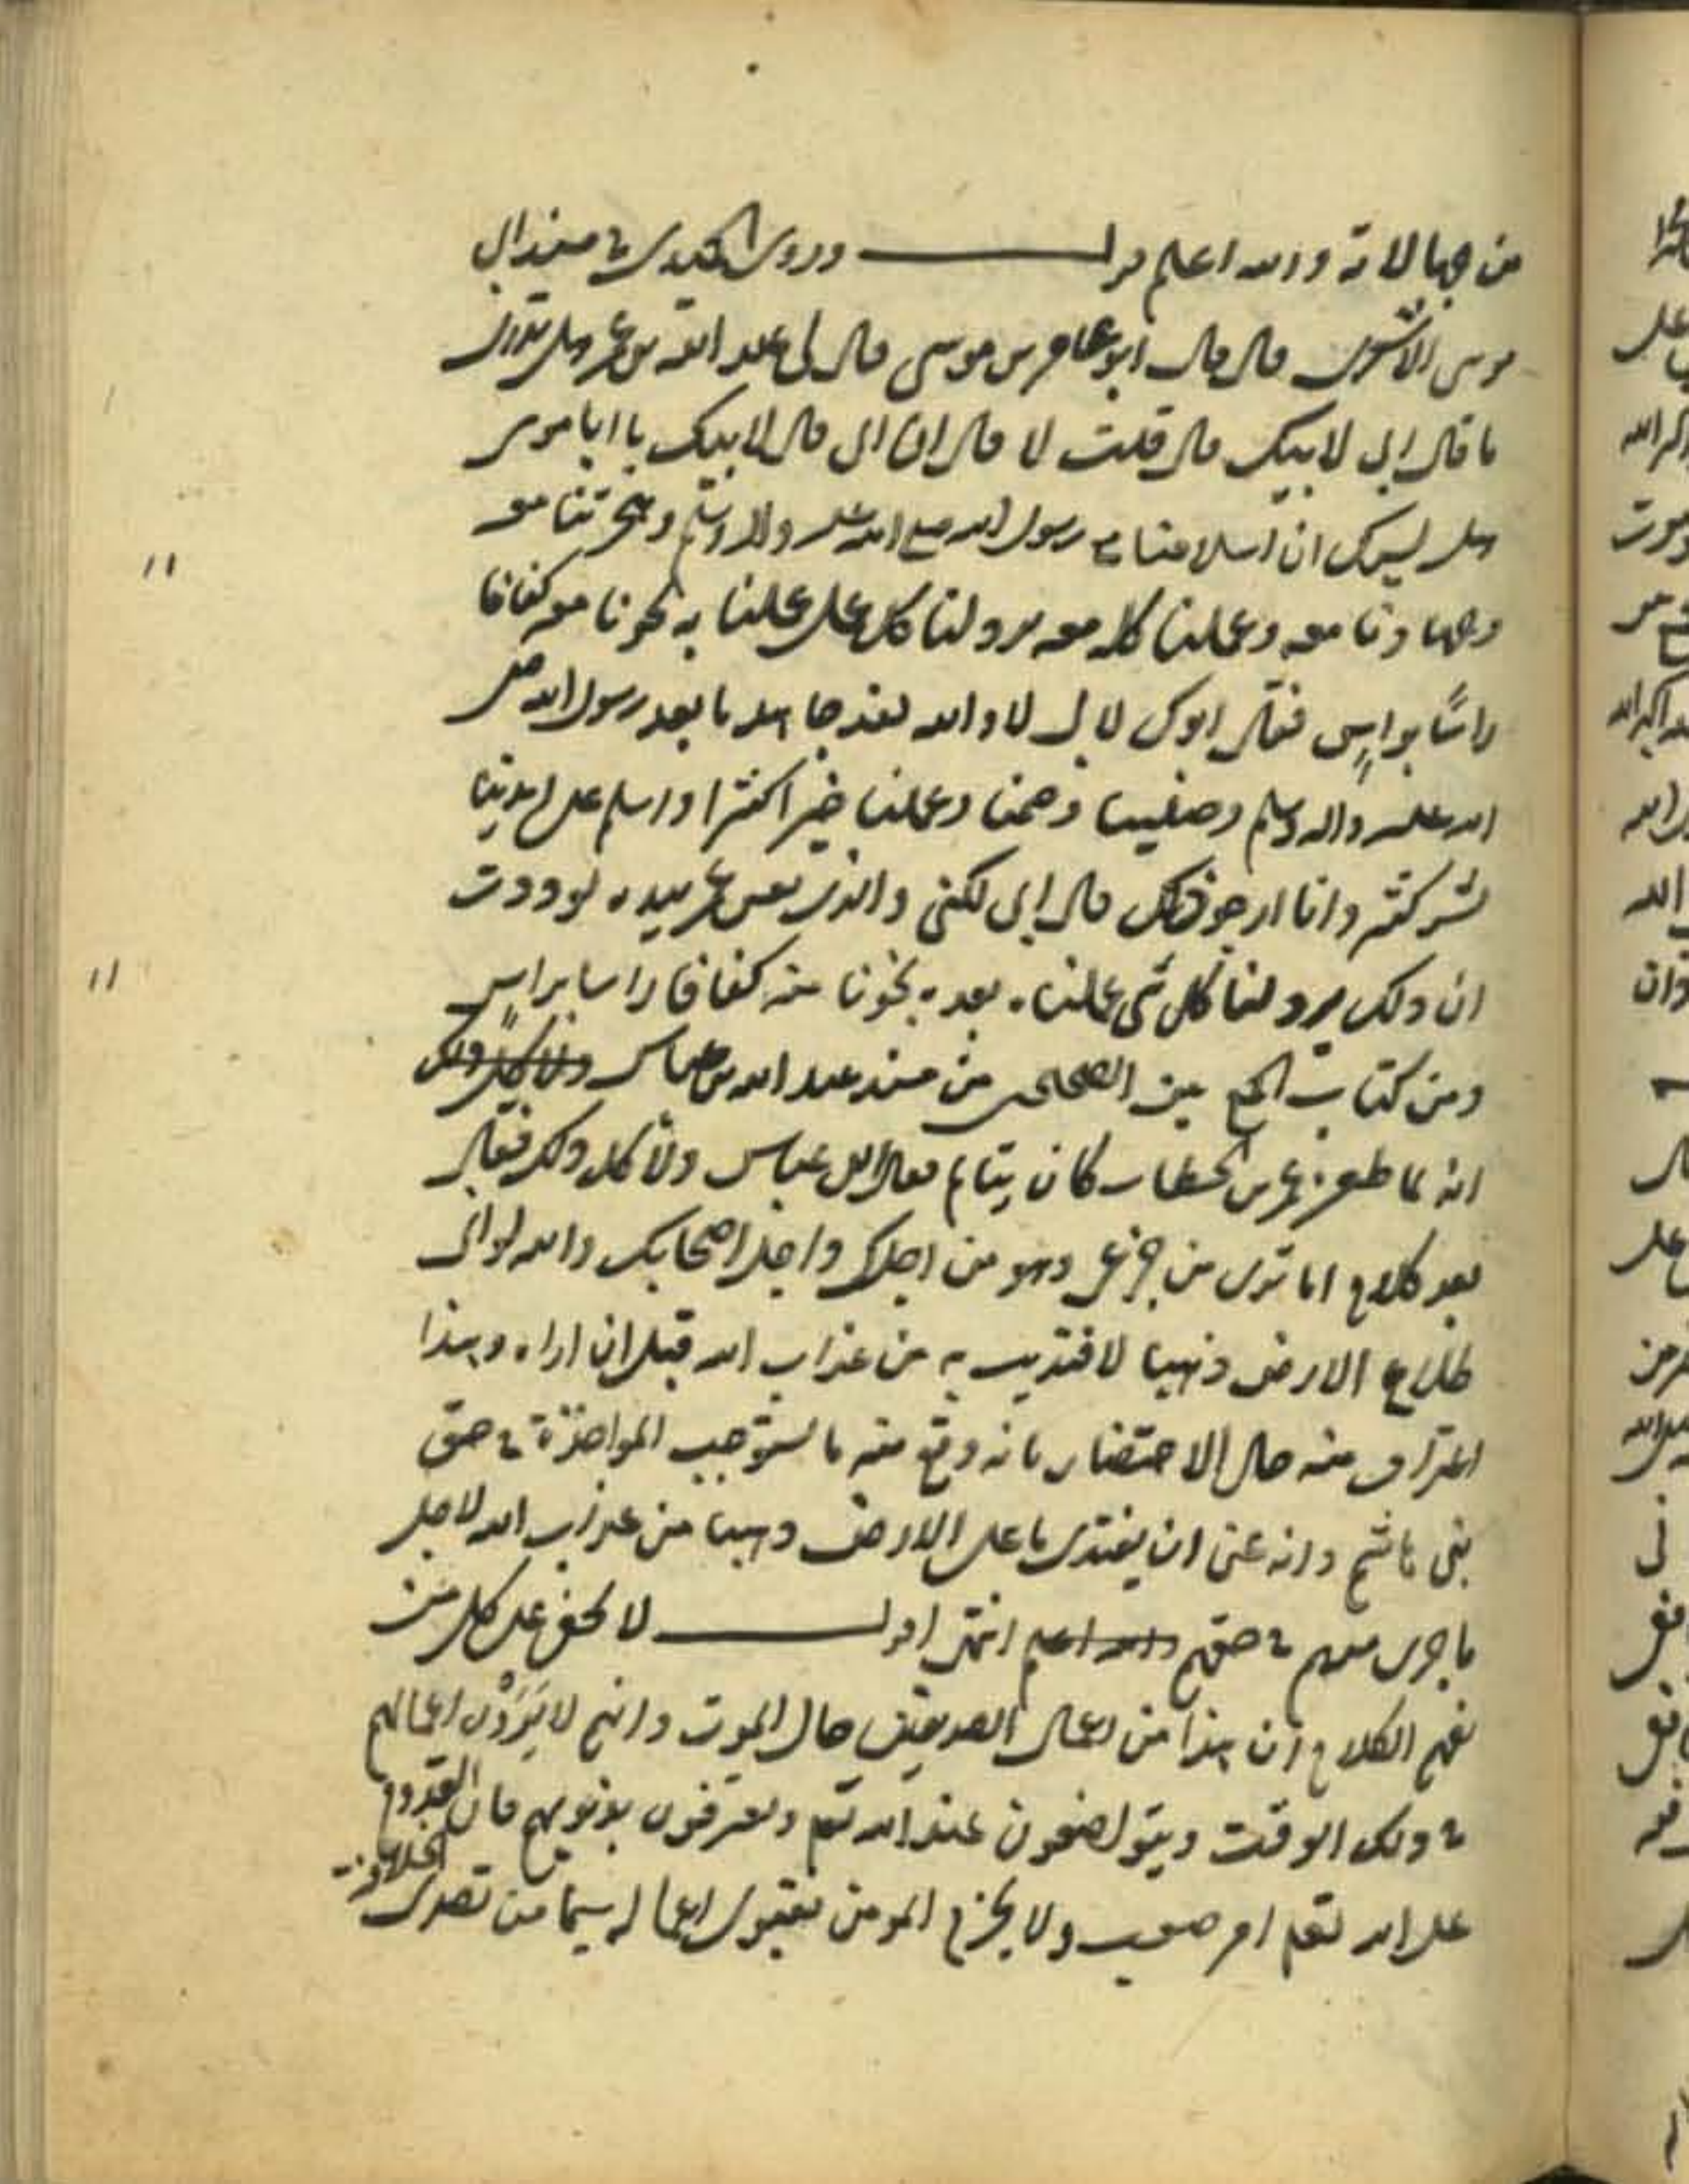 من جهالاته والله اعلم قوله وروى الحميدى في مسند ابى
موسى الاشعرى قال قال ابو عامر بن موسى قال لى عبد الله بن عمر هل تدرى
ما قال ابى لابيك قال قلت لا قال ان ابى قال لابيك يا ابا موسى
هل يسرك ان اسلامنا مع رسول الله صلى الله عليه واله وسلم وهجرتنا معه
وجهادنا معه وعملنا كله معه يرد لنا كل عمل عملنا به نجونا معه كفافا
راسًا براسٍ فقال ابوك لابى لا والله لقد جاهدنا بعد رسول الله صلى
الله عليه واله وسلم وصلينا وصمنا وعملنا خيرا كثيرا واسلم على ايدينا
بشر كثير وانا ارجو ذلك قال ابى لكنى والذى نفس عمر بيده لوددت
ان ذلك يرد لنا كل شى عملناه بعده نجونا منه كفافا راسا براسٍ
ومن كتاب الجمع بين الصحيحين من مسند عبد الله بن عباس ولا كل ذلك
انه لما طعن عمر بن الخطاب كان يتالم فقال ابن عباس ولا كل ذلك فقال
بعد كلام اما ترى من جزعى وهو من اجلك واجل اصحابك والله لو ان لى
طلاع الارض ذهبا لافتديت به من عذاب الله قبل ان اراه وهذا
اعتراف منه حال الاحتضار بانه وقع منه ما يستوجب المواخذة في حق
بنى هاشم وانه تمنى ان يفتدى بما على الارض ذهبا من عذاب الله لاجل
ما جرى منهم في حقهم والله اعلم انتهى اقول لا يخفى على كل من
يفهم الكلام ان هذا من اعمال الصديقين حال الموت وانهم لا يَرَوْن اعمالهم
في ذلك الوقت ويتواضعون عند الله تعم ويعترفون بذنوبهم فان القدوم
على الله تعم امر صعب ولا يجزم المومن بقبول اعماله سيما من تصدى الخلافة